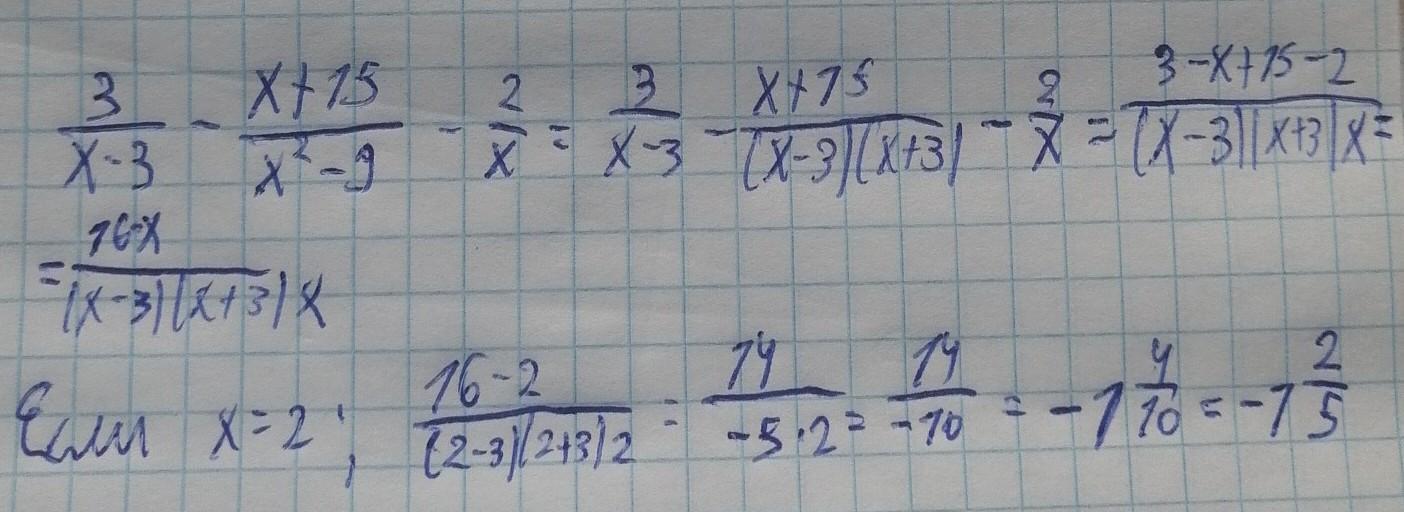 3/(x-3) - (x+15)/(x²-9) - 2/x = 3/(x-3) - (x+15)/((x-3)(x+3)) - 2/x = (3-x+15-2)/((x-3)(x+3)x) =
= (16-x)/((x-3)(x+3)x)
Если x=2; (16-2)/((2-3)(2+3)2) = 14/(-5·2) = 14/(-10) = -1 4/10 = -1 2/5